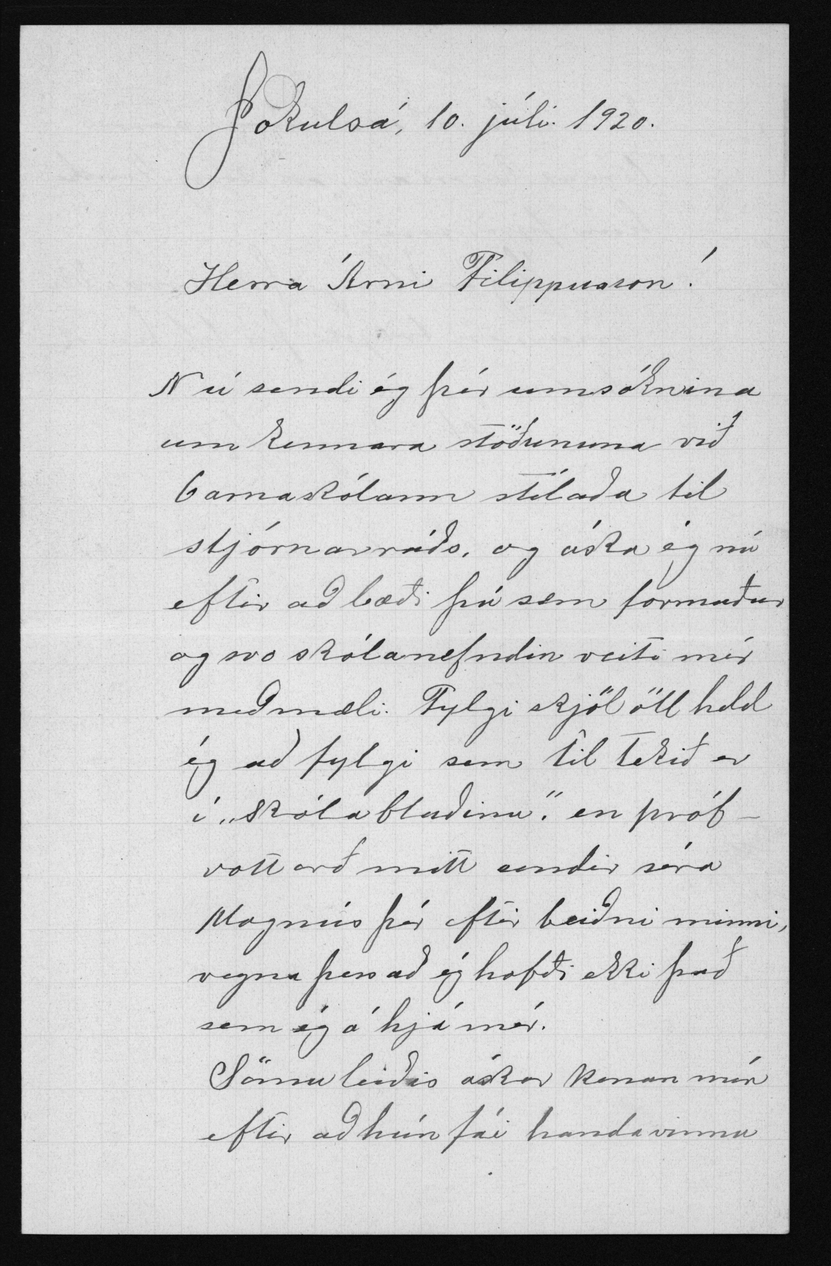 Jokulsá, 10. júlí. 1920.
Herra Árni Filippusson!
Nú sendi ég þér umsóknina
um kennara stöðununa við
barnaskólann stílaða til
stjórnarráðs, og óska ég nú
eftir að bæði þú sem formaður
og svo skólanefndin veiti mér
meðmæli. Fylgi skjöl öll held
ég að fylgi sem til tekið er
í „skóla blaðinu”. en próf-
vottorð mitt sendir séra
Magnús þér eftir beiðni minni,
vegna þess að ég hafði ekki það
sem ég á hjá mér.
Sömuleiðis óskar konan mín
eftir að hún fái handavinnu